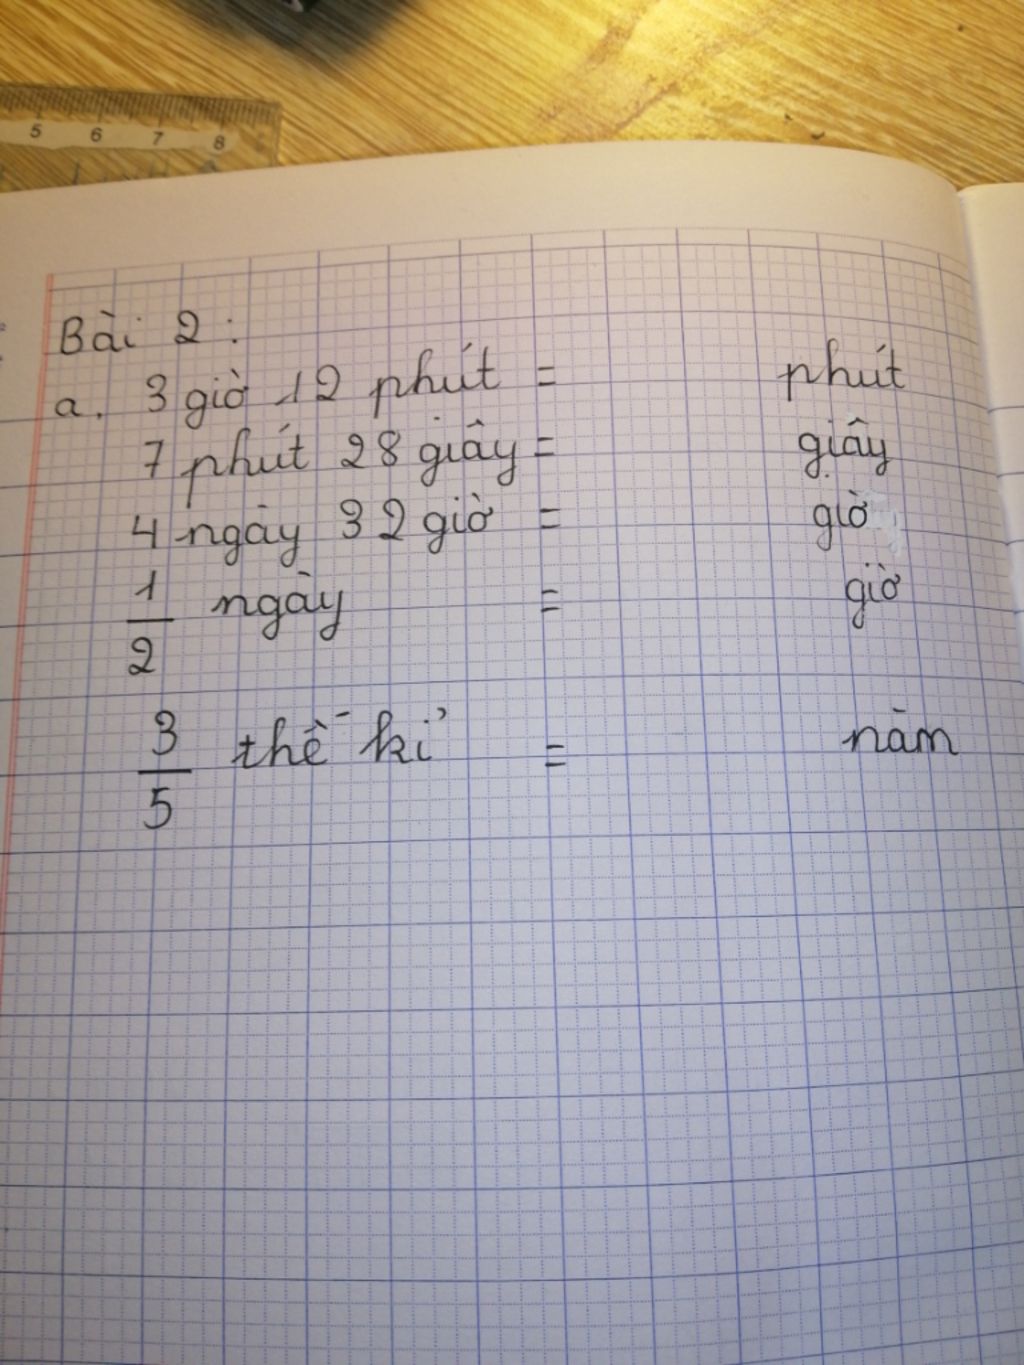 5 6 7 8
Bài 2:
a. 3 giờ 12 phút = phút
7 phút 28 giây = giây
4 ngày 32 giờ = giờ
1/2 ngày = giờ
3/5 thế kỉ = năm